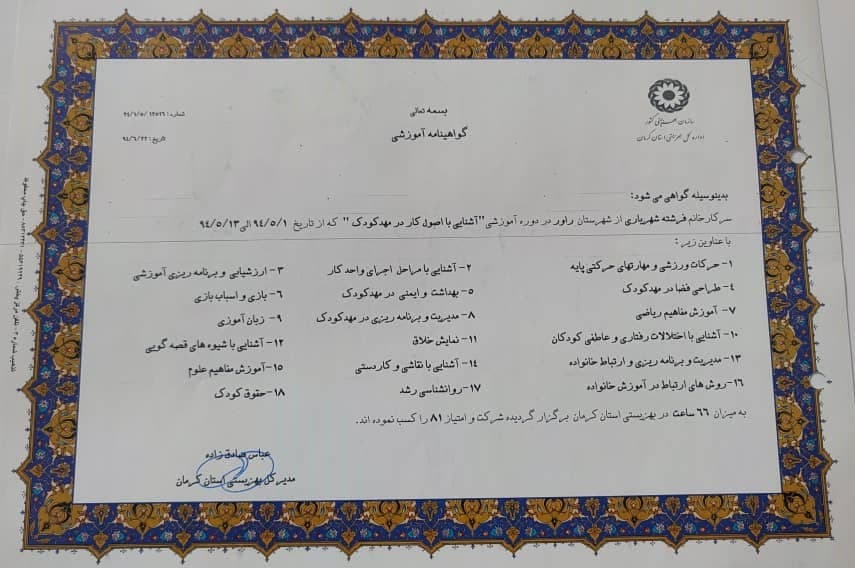 بسمه تعالی
گواهینامه آموزشی
سازمان بهزیستی کشور
اداره کل بهزیستی استان کرمان
تاریخ: ۹۴/۶/۲۲
بدینوسیله گواهی می شود:
سرکارخانم فرشته شهریاری از شهرستان راور در دوره آموزشی "آشنایی با اصول کار در مهدکودک " که از تاریخ ۹۴/۵/۱ الی ۹۴/۵/۱۳
با عناوین زیر :
۱- حرکات ورزشی و مهارتهای حرکتی پایه ۲- آشنایی با مراحل اجرای واحد کار ۳- ارزشیابی و برنامه ریزی آموزشی
۴- طراحی فضا در مهدکودک ۵- بهداشت و ایمنی در مهدکودک ۶- بازی و اسباب بازی
۷- آموزش مفاهیم ریاضی ۸- مدیریت و برنامه ریزی در مهدکودک ۹- زبان آموزی
۱۰- آشنایی با اختلالات رفتاری و عاطفی کودکان ۱۱- نمایش خلاق ۱۲- آشنایی با شیوه های قصه گویی
۱۳- مدیریت و برنامه ریزی و ارتباط خانواده ۱۴- آشنایی با نقاشی و کاردستی ۱۵- آموزش مفاهیم علوم
۱۶- روش های ارتباط در آموزش خانواده ۱۷- روانشناسی رشد ۱۸- حقوق کودک
به میزان ۶۶ ساعت در بهزیستی استان کرمان برگزار گردیده شرکت و امتیاز ۸۱ را کسب نموده اند.
عباس صادق زاده
مدیر کل بهزیستی استان کرمان